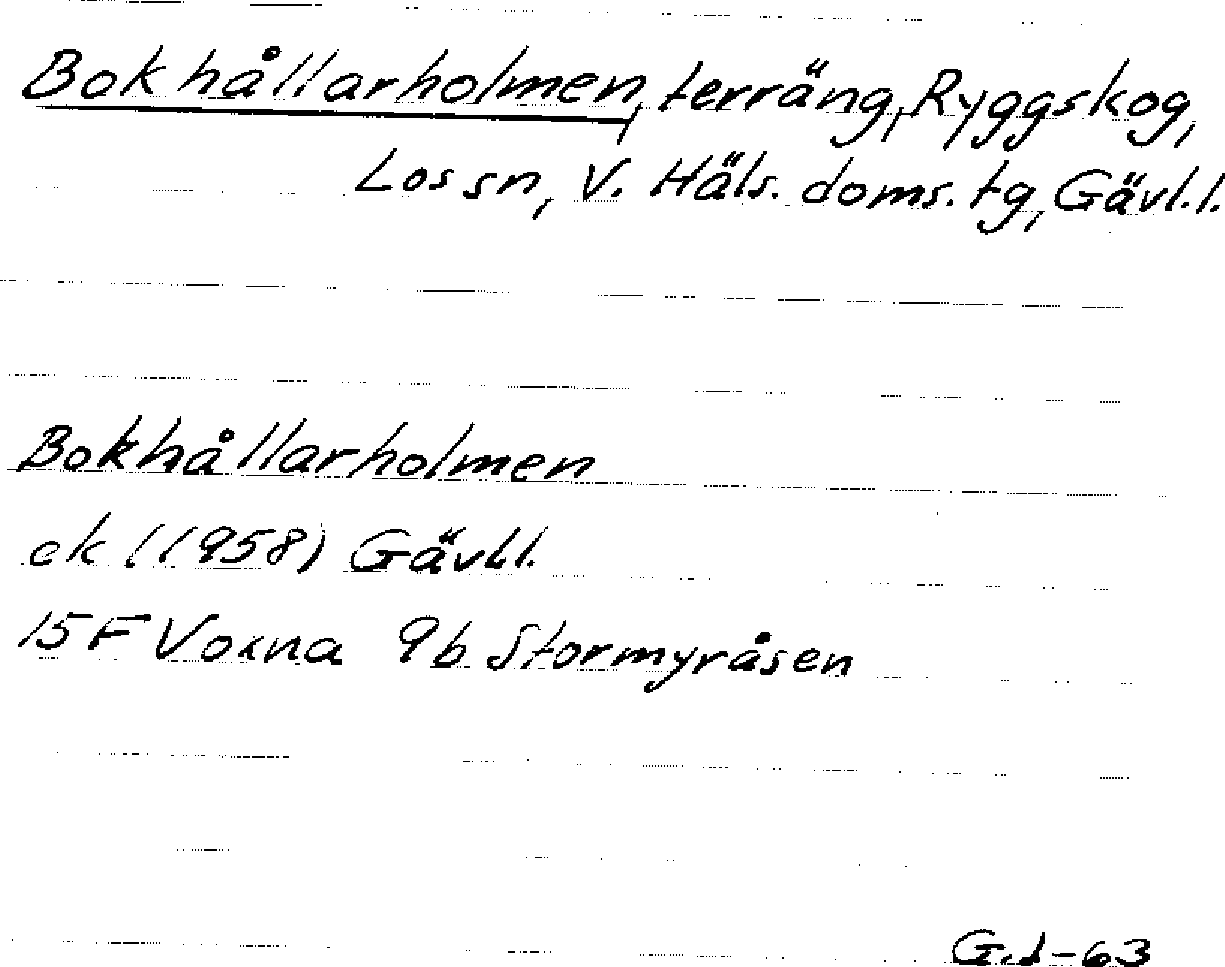 Bokhållarholmen, terräng, Ryggskog,
Los sn, V. Häls. doms. tg, Gävl.l.
Bokhållarholmen
ek (1958) Gävl.l.
15F Voxna 9b Stormyråsen
G.d-63